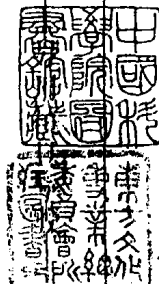 中國科
學院圖
書館藏
東方文化
事業總
委員會所
藏圖書